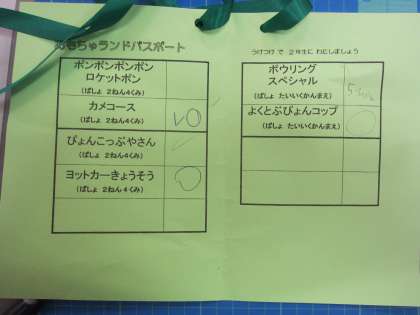 おもちゃランドパスポート
ポンポンポンポン
ロケットポン
(ばしょ 2ねん4くみ)
カメコース
(ばしょ 2ねん4くみ)
10
ぴょんこっぷやさん
(ばしょ 2ねん4くみ)
ヨットカーきょうそう
(ばしょ 2ねん4くみ)
うけつけ で 2年生に わたしましょう
ボウリング
スペシャル
(ばしょ たいいくかんまえ)
よくとぶぴょんコップ
(ばしょ たいいくかんまえ)